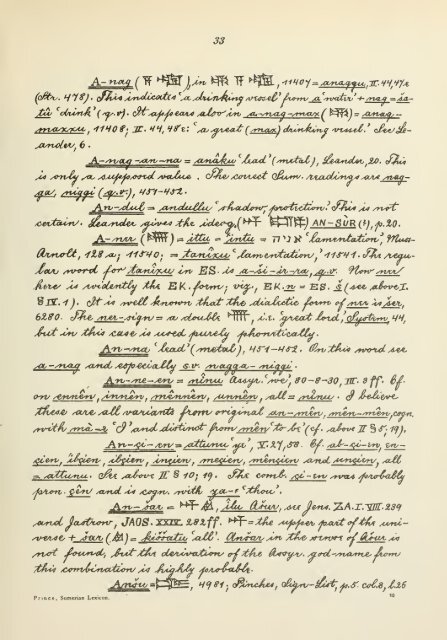 33
A-nag (𒀀 𒅘), in 𒀀 𒅘, 11407 = anaqqu, II. 44,47e
(Str. 478). This indicates 'a drinking vessel' from a 'water' + nag = ša-
tû 'drink' (q.v). It appears also in a-nag-max = anag-
maxxu, 11408; II. 44,48e: 'a great (max) drinking vessel.' See Le-
ander, 6.
A-nag-an-na = anâku 'lead' (metal), Leander, 20. This
is only a supposed value. The correct Sum. readings are nag-
ga, niggi (q.v.), 451-452.
An-dul = andullu 'shadow, protection.' This is not
certain. Leander gives the ideog. AN-SÙR (!), p.20.
A-nir = ittu = 'intu = 'lamentation,' Muss-
Arnolt, 128a; 11540; = tanîxu 'lamentation,' 11541. The regu-
lar word for tanîxu in ES. is a-ši-ir-ra, q.v. Now nir
here is evidently the EK. form; viz., EK. n = ES. š (see above I.
§ IV. 1). It is well known that the dialectic form of nir is šer,
6280. The nir-sign = a double, i.e. 'great lord,' Syotm, 44,
but in this case is used purely phonetically.
An-na 'lead' (metal), 451-452. On this word see
a-nag and especially s.v. nagga-niggi.
An-ne-en = nînu Assyr. 'we', 80-8-30, III. 3 ff. Cf.
on ennên, innên, mènnên, unnên, all = nînu. I believe
these are all variants from original an-mên, mên-mên, cogn.
with mà-e 'I' and distinct from mên 'to be' (cf. above II § 5, 19).
An-ṣi-en = attunu 'ye', V. 27,58. Cf. ab-ṣi-in, en-
ṣien, ibṣien, ibṣien, inṣien, meṣien, mênṣien and unṣien, all
= attunu. See above II § 10; 19. The comb. ṣi-en was probably
pron. ṣên and is cogn. with za-e 'thou'.
An-šar = 𒀭 𒊹, îlu Ašur, see Jens. ZA. I. VIII. 239
and Jastrow, JAOS. XXIV. 282 ff. 𒀭 = the upper part of the uni-
verse + šar (𒊹) = kiššatu 'all'. Anšar in the sense of Ašur is
not found, but the derivation of the Assyr. god-name from
this combination is highly probable.
Anšu =, 4981; Pinches, Sign-List, p.5. col.2, l.26
Prince, Sumerian Lexicon.
10